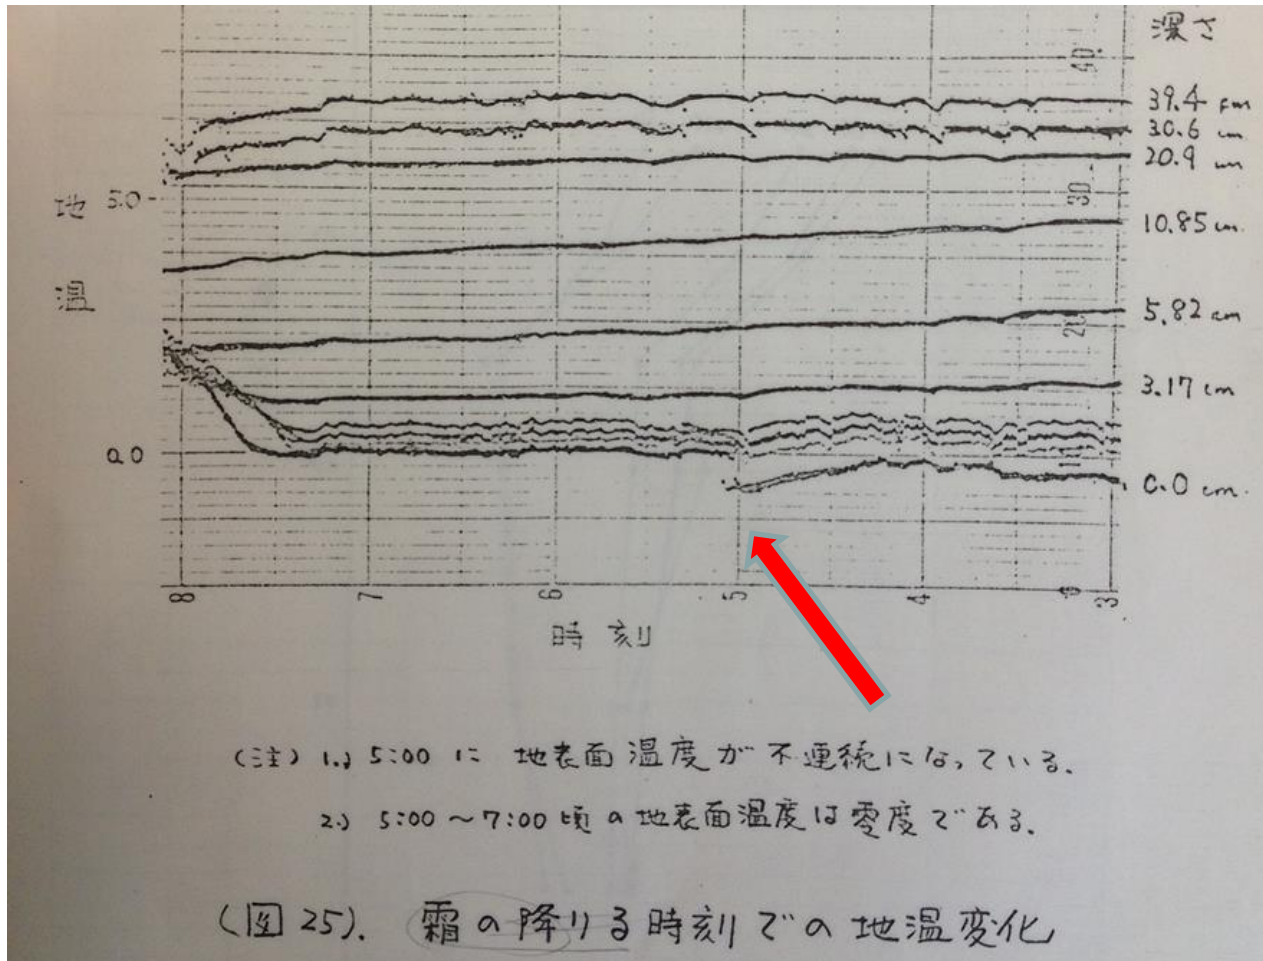 深さ
40.
39.4 cm
30.6 cm
20.9 cm
地 5.0 -
30
10.85 cm.
温
5.82 cm
20
3.17 cm
0.0
0.0 cm.
8 7 6 5 4 3
時刻
(注) 1.) 5:00 に 地表面温度が不連続になっている.
2.) 5:00～7:00頃の地表面温度は零度である.
(図25). 霜の降りる時刻での地温変化